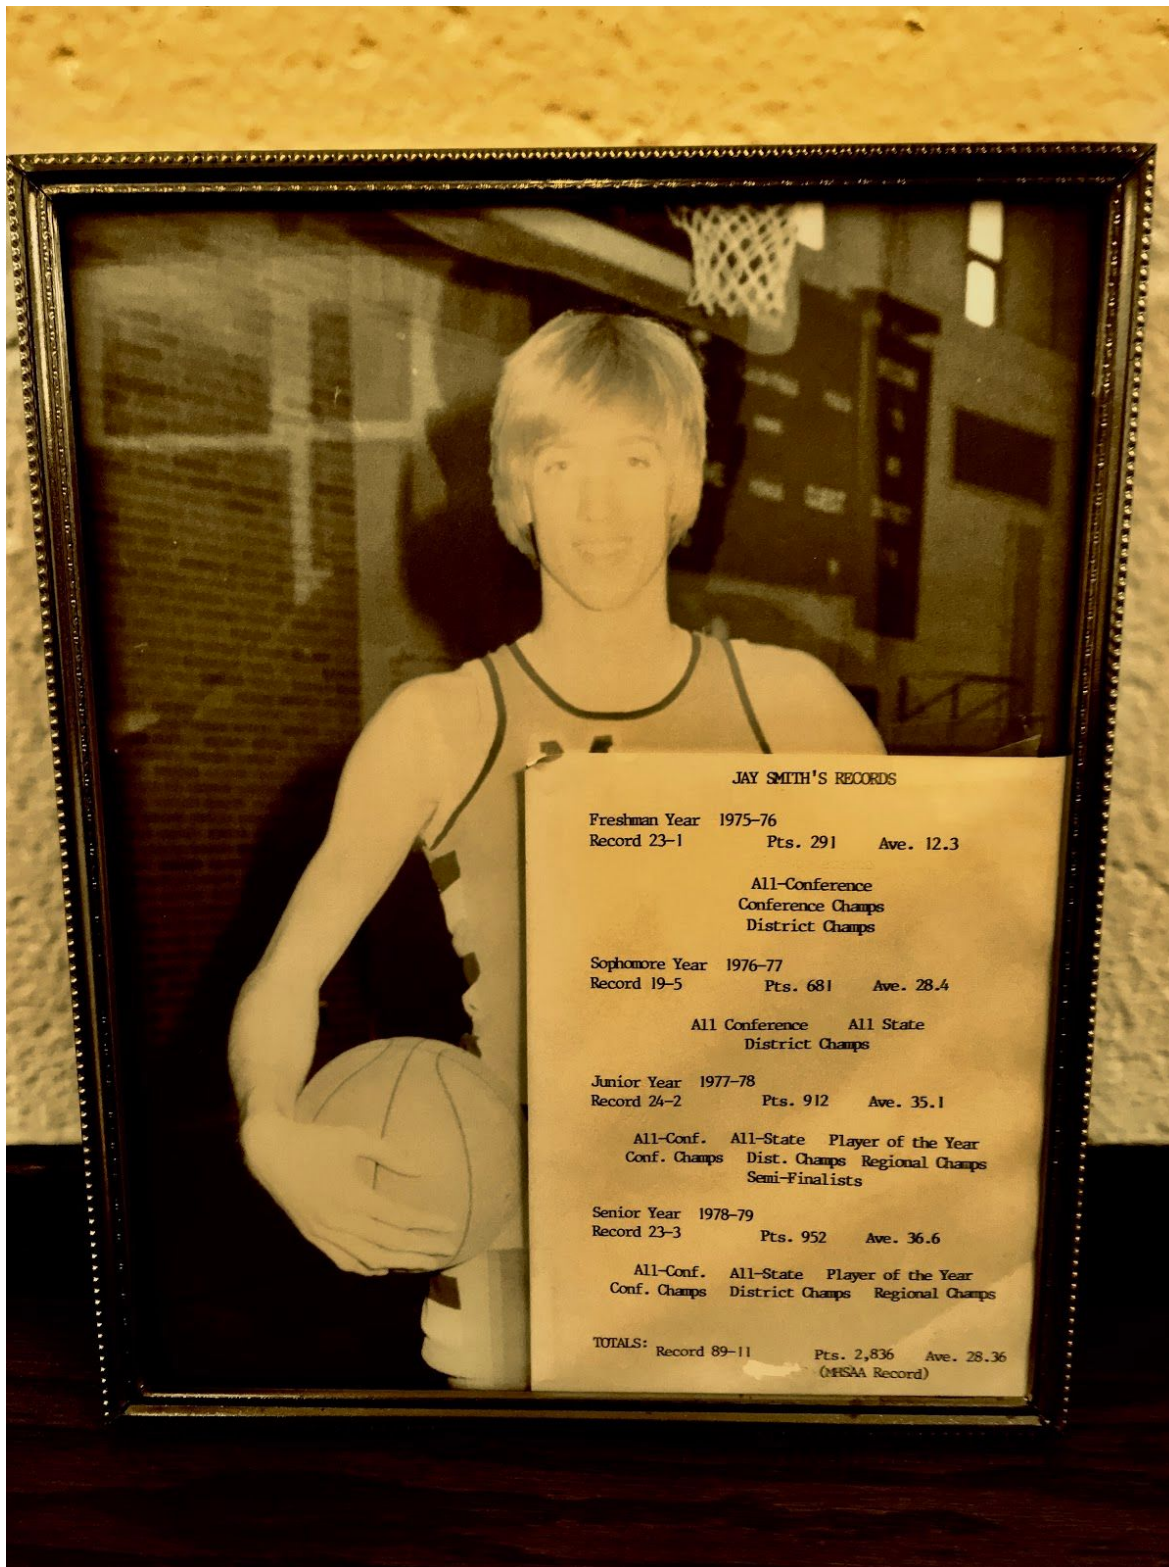 JAY SMITH'S RECORDS
Freshman Year 1975-76
Record 23-1 Pts. 291 Ave. 12.3
All-Conference
Conference Champs
District Champs
Sophomore Year 1976-77
Record 19-5 Pts. 681 Ave. 28.4
All Conference All State
District Champs
Junior Year 1977-78
Record 24-2 Pts. 912 Ave. 35.1
All-Conf. All-State Player of the Year
Conf. Champs Dist. Champs Regional Champs
Semi-Finalists
Senior Year 1978-79
Record 23-3 Pts. 952 Ave. 36.6
All-Conf. All-State Player of the Year
Conf. Champs District Champs Regional Champs
TOTALS: Record 89-11 Pts. 2,836 Ave. 28.36
(MHSAA Record)